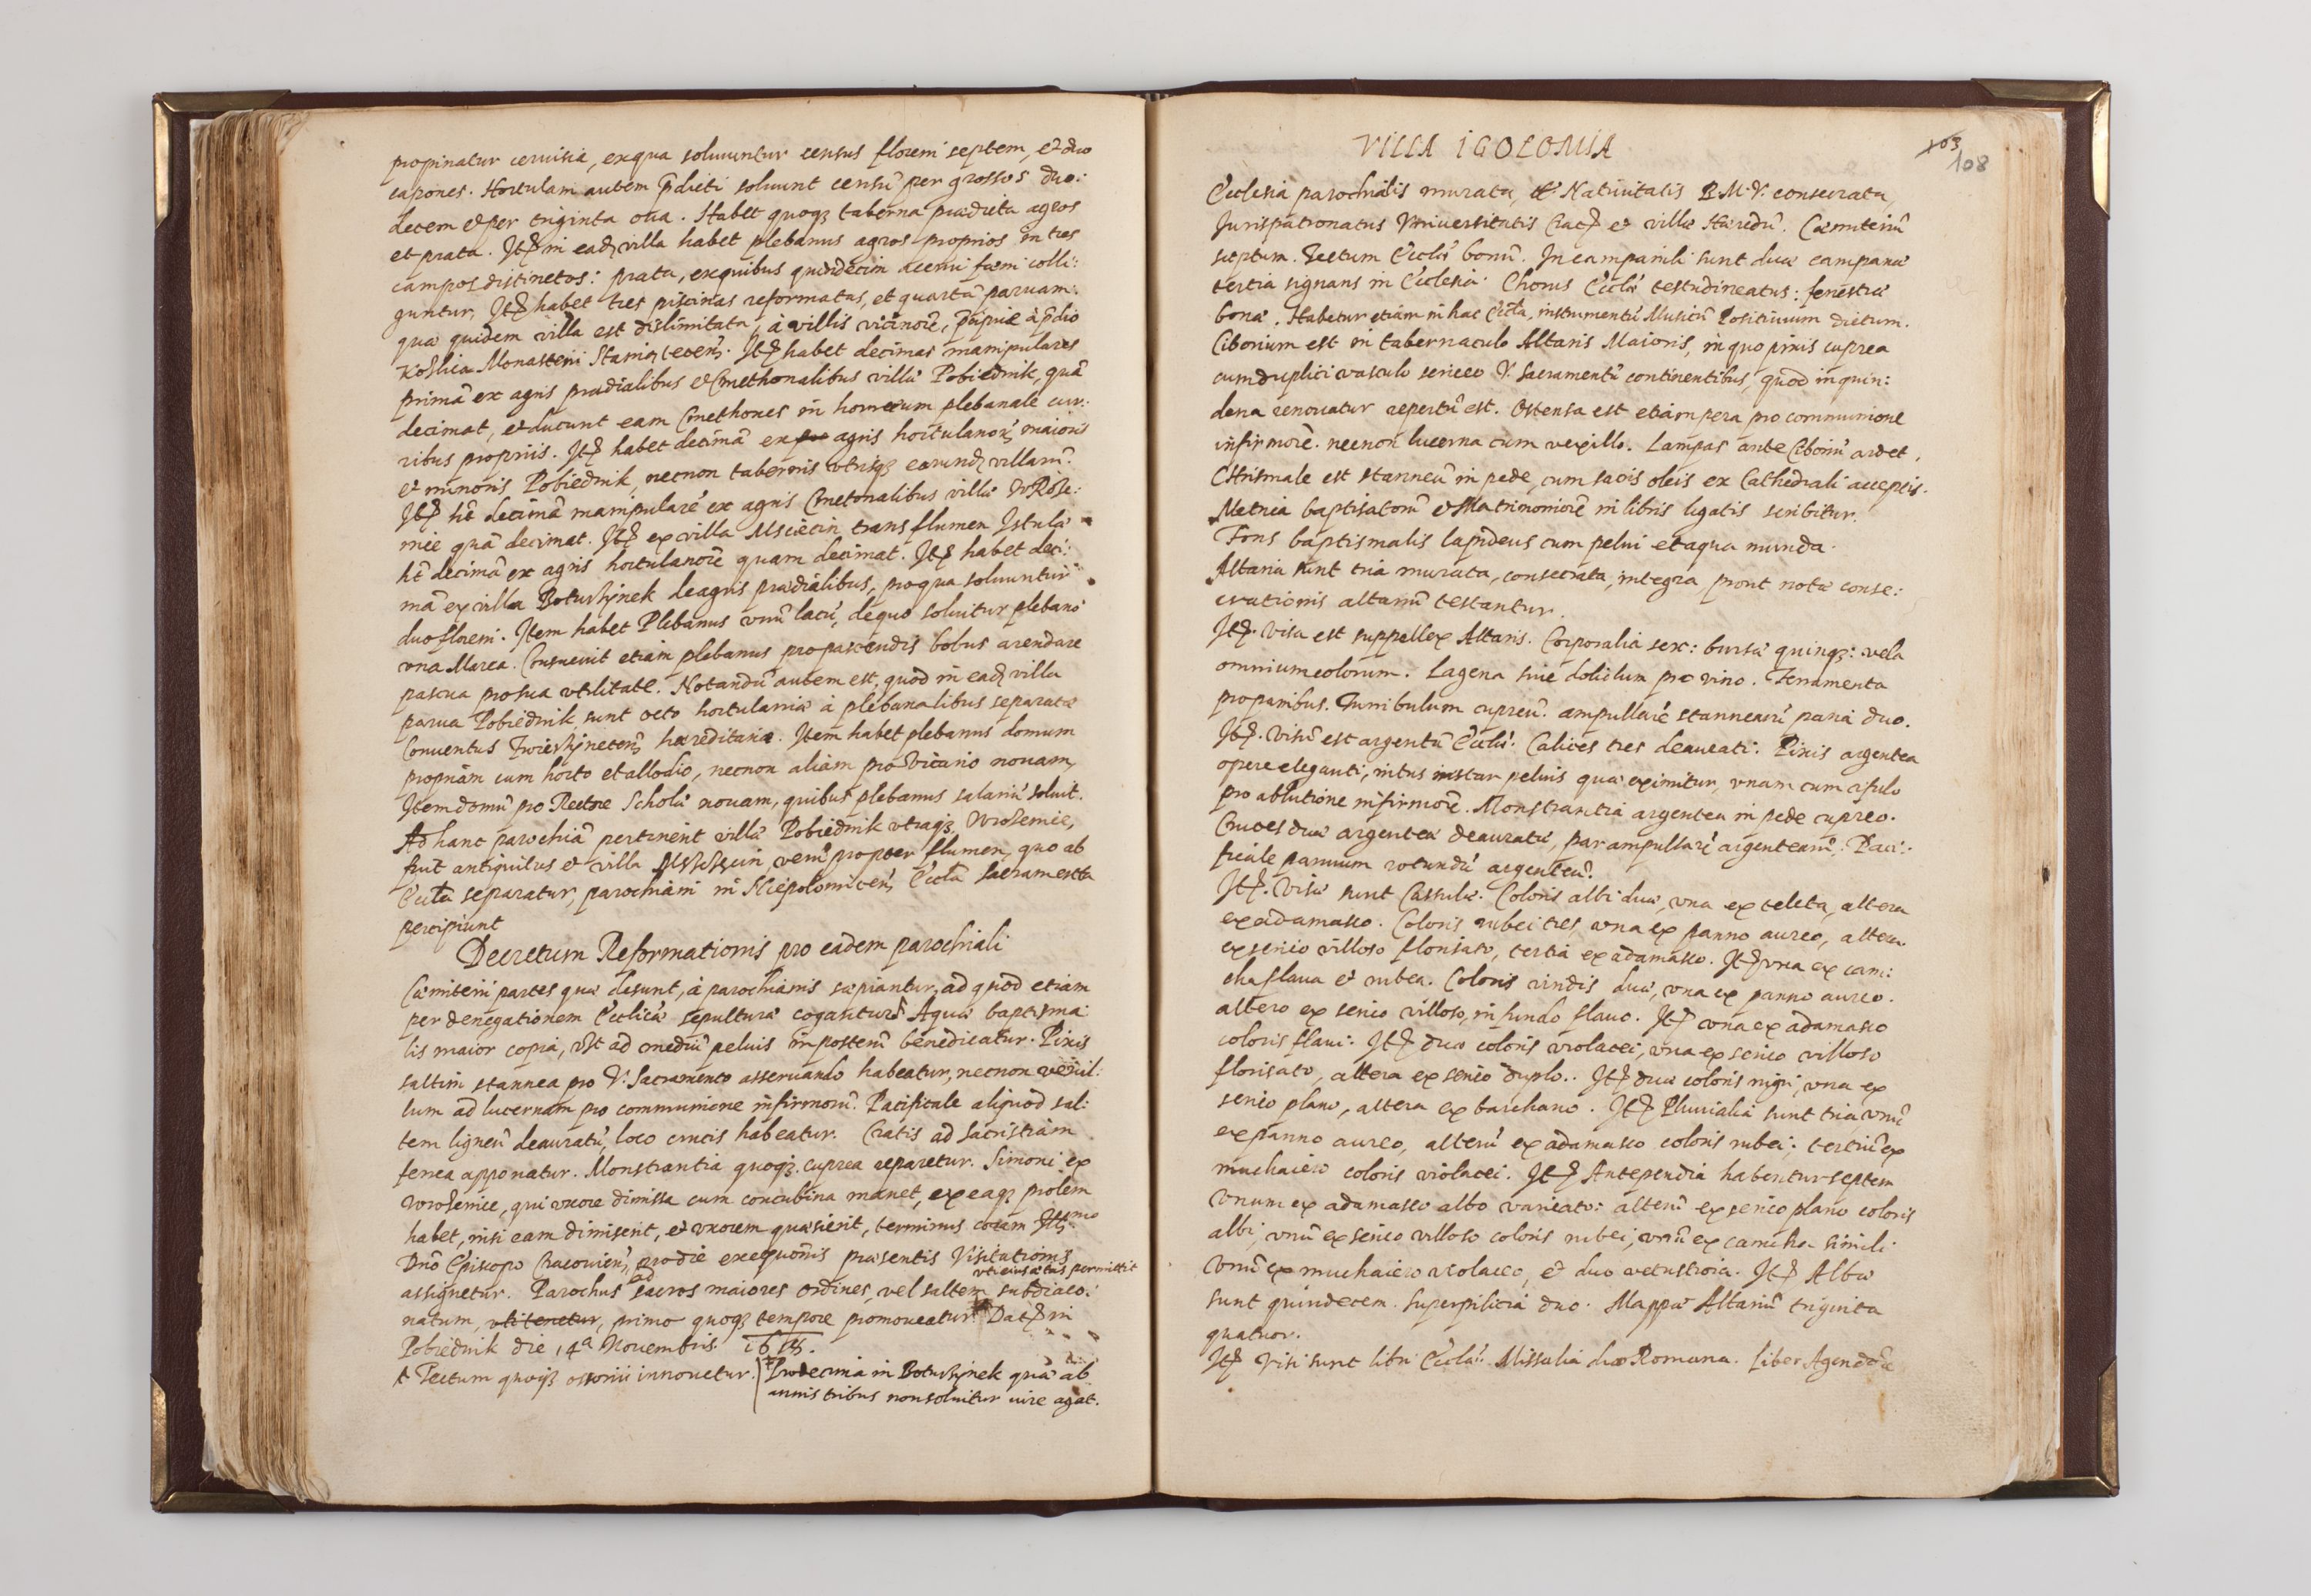 propinatur ceruisia, ex qua soluuntur census floreni septem, et duo
capones. Hortulani autem p̃dicti soluunt censũ per grossos duo:
decem et per triginta oua. Habet quoqȝ taberna praedicta agros
et prata. Itẽ in eadȝ villa habet plebanus agros proprios in tres
campos distinctos: prata, ex quibus quindecim acerui faeni colli:
guntur. Itẽ habet tres piscinas reformatas, et quartã paruam:
quae quidem villa est dislimitata, à villis vicinorẽ, p̃cipue à p̃dio
Koshica Monasterii Staniątecens̃. Itẽ habet decimas manipulares
primã ex agris praedialibus et Cmethonalibus villae Pobiednik, quã
decimat, et ducunt eam Cmethones in horreum plebanale cur:
ribus propriis. Itẽ habet decimã ex agris hortulanorũ maioris
et minoris Pobiednik, necnon tabernis utriusqȝ earundȝ villarũ.
Itẽ hẽt decimã manipularẽ ex agris Cmetonalibus villae Wrože:
mie quã decimat. Itẽ ex villa Msciecin trans flumen Istulã
hẽt decimã ex agris hortulanorẽ quam decimat. Itẽ habet deci:
mã ex villa Boturzynek de agris praedialibus, pro qua soluuntur
duo floreni. Item habet Plebanus vnũ lacũ, de quo soluitur plebano
vna Marca. Consueuit etiam plebanus pro pascendis bobus arendare
pascua pro sua vtilitate. Notandũ autem est, quod in eadȝ villa
parua Pobiednik sunt octo hortulaniae à plebanalibus separatae
Conuentus Zwierzynecens̃ haereditariae. Item habet plebanus domum
propriam cum horto et allodio, necnon aliam pro Vicario nouam,
Item domũ pro Rectore Scholae nouam, quibus plebanus salariũ soluit.
Ad hanc parochiã pertinent villae Pobiednik vtraqȝ, Wrożemie,
fuit antiquitus et villa Msciecin verũ propter flumen, quo ab
Eccl̃a separatur, parochiani in Niepolomicens̃ Eccl̃a sacramenta
percipiunt
Decretum Reformationis pro eadem parochiali
Caemiterii partes quae desunt, à parochianis saepiantur, ad quod etiam
per denegationem Ecclicae sepulturae cogantur † Aquae baptisma:
lis maior copia, vsqȝ ad mediũ peluis in posterũ benedicatur. Pixis
saltim stannea pro V. Sacramento asseruando habeatur, necnon vexil:
lum ad lucernam pro communione infirmorũ. Pacificale aliquod sal:
tem ligneũ deauratũ, loco crucis habeatur. Cratis ad sacristiam
ferrea apponatur. Monstrantia quoqȝ cuprea reparetur. Simoni ex
Wrożemice, qui vxore dimissa cum concubina manet, ex eaqȝ prolem
habet, nisi eam dimiserit, et vxorem quaesierit, terminus coram Illmo
Dnõ Episcopo Cracouien̄, pro die exequonis praesentis Visitationis
vti eius aetas permittit
assignetur. Parochus ad sacros maiores ordines, vel saltem subdiaco:
natum, vti tenetur, primo quoqȝ tempore promoueatur. Datẽ in
Pobiednik die 14a Nouembris 1618.
† Tectum quoqȝ ossorii innouetur. † Pro decima in Boturzynek quae ab
annis tribus non soluitur iure agat.
103
108
VILLA IGOLOMIA
Ecclesia parochialis murata, tt. Natiuitatis B. M. V. consecrata,
Iurispatronatus Vniuersitatis Cracẽ et villae Haeredũ. Caemiteriũ
saeptum. Tectum Eccl̃ae bonũ. In campanili sunt duae campanae
tertia signans in Ecclesia. Chorus Eccl̃ae testudineatus: fenestrae
bonae. Habetur etiam in hac Eccl̃a, instrumentũ Musicũ Positiuum dictum.
Ciborium est in tabernaculo Altaris Maioris, in quo pixis cuprea
cum duplici vasculo sericeo V. Sacramentũ continentibus, quod in quin:
dena renouatur repertũ est. Ostensa est etiam pera pro communione
infirmorẽ. necnon lucerna cum vexillo. Lampas ante Ciboriũ ardet.
Chrismale est stanneũ in pede, cum sacris oleis ex Cathedrali acceptis.
Metrica baptisatorũ et Matrimoniorẽ in libris ligatis scribitur.
Fons baptismalis lapideus cum pelui et aqua munda.
Altaria sunt tria murata, consecrata, integra prout notae conse:
crationis altariũ testantur.
Itẽ. Visa est suppellex Altaris. Corporalia sex: bursae quinqȝ: vela
omnium colorum. Lagena siue doliolum pro vino. Ferramenta
pro panibus. Turribulum cupreũ. ampullarũ stannearũ paria duo.
Itẽ. Visũ est argentũ Eccl̃ae. Calices tres deaurati. Pixis argentea
opere eleganti, intus instar peluis quae eximitur, vnam cum cifulo
pro ablutione infirmorẽ. Monstrantia argentea in pede cupreo.
Cruces duae argenteae deauratae, par ampullarũ argentearũ. Paci:
ficale paruum rotundũ argenteũ.
Itẽ. Visae sunt Cassulae. Coloris albi duae, vna ex teleta, altera
ex adamasco. Coloris rubei tres vna ex panno aureo, altera
ex serico villoso florisato, tertia ex adamasco. Itẽ vna ex cam:
cha flaua et rubea. Coloris viridis duae, vna ex panno aureo.
altero ex serico villoso, in fundo flauo. Itẽ vna ex adamasco
coloris flaui. Itẽ duae coloris violacei, vna ex serico villoso
florisato, altera ex serico duplo. Itẽ duae coloris nigri, vna ex
serico plano, altera ex barchano. Itẽ Pluuialia sunt tria vnũ
ex panno aureo, alterũ ex adamasco coloris rubei; tertiũ ex
muchaiero coloris violacei. Itẽ Antependia habentur septem
vnum ex adamasco albo variato: alterũ ex serico plano coloris
albi, vnũ ex serico villoso coloris rubei, vnũ ex camcha simili
vnũ ex muchaiero violaceo, et duo vetustiora. Itẽ Albae
sunt quindecem. Superpilicia duo. Mappae Altariũ triginta
quatuor.
Itẽ Visi sunt libri Eccl̃ae. Missalia duo Romana. Liber Agendorũ